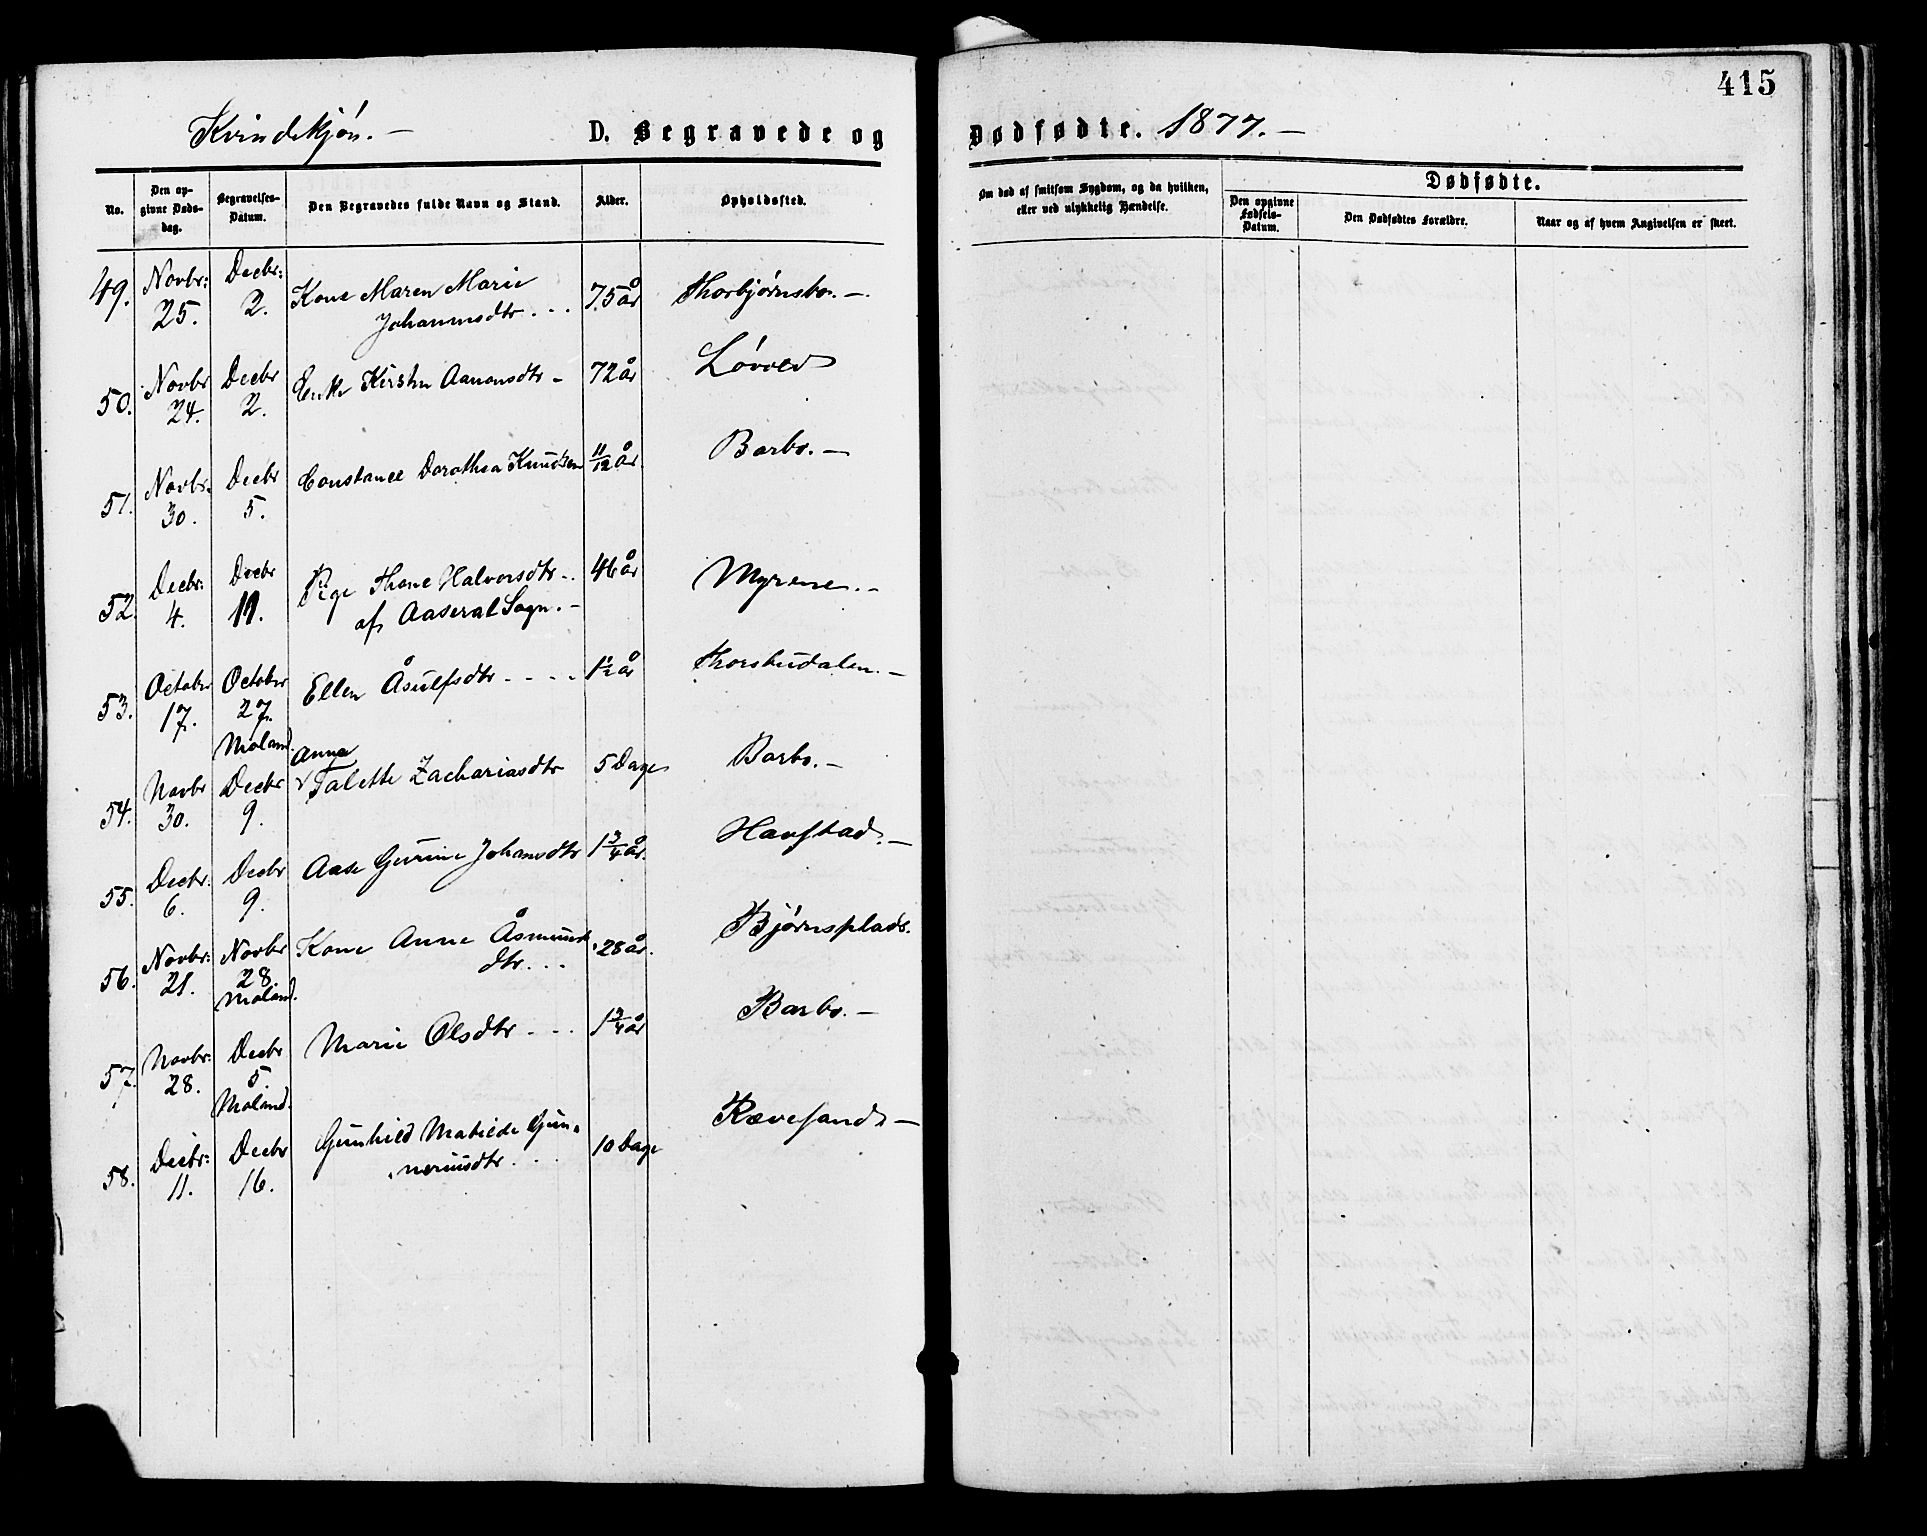 415
Kvindekjøn. —
D. Begravede og
Dødfødte. 1877. —
No.
Den op-
givne Døds-
dag.
Begravelses-
Datum.
Den Begravedes fulde Navn og Stand.
Alder.
Opholdssted.
Om død af smitsom Sygdom, og da hvilken,
eller ved ulykkelig Hændelse.
Dødfødte.
Den opgivne
Fødsels-
Datum.
Den Dødfødtes Forældre.
Naar og af hvem Angivelsen er skeet.
49. Novbr: 25. Decbr: 2. Kone Maren Marie 75 år Thorbjørnsbo. —
Johannisdtr . . .
50. Novbr 24. Decbr 2. Enke Kirsten Aanonsdtr - 72 år Løvved
51. Novbr. 30. Decbr 5. Constance Dorothea Knudsen 11/12 år Barbo. —
52. Decbr: 4. Decbr 11. Pige Thone Halvorsdtr - . 46 år Myrene. -
af Aaseral Sogn. -
53. October 17. October 27. Moland. Ellen Åsulfsdtr - - - - 1½ år Thorsbudalen. -
54. Novbr 30. Decbr 9. Anna
Talette Zachariasdtr 5 Dage Barbo. -
55. Decbr. 6. Decbr 9. Aase Gurine Johansdtr 1 3/4 år. Havstad. —
56. Novbr: 21. Novbr 28. Moland. Kone Anne Åsmunds 28 år. Bjørnsplads.
dtr. . .
57. Novbr: 28. Decbr 5. Moland. Marie Olsdtr - - - 1 3/4 år Barbo. —
58. Decbr: 11. Decbr 16. Gunhild Matilde Gun- 10 Dage Rævesand —
neriusdtr . . .